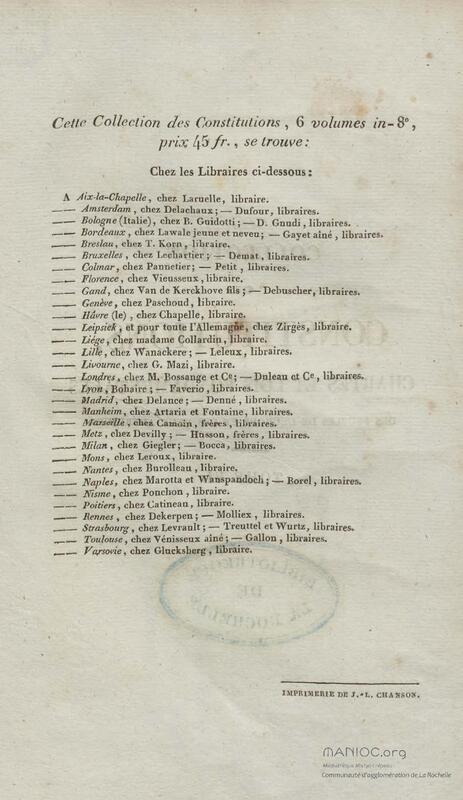 Cette Collection des Constitutions, 6 volumes in-8º,
prix 45 fr., se trouve:
Chez les Libraires ci-dessous:
A Aix-la-Chapelle, chez Laruelle, libraire.
—— Amsterdam, chez Delachaux; — Dufour, libraires.
—— Bologne (Italie), chez B. Guidotti; — D. Gnudi, libraires.
—— Bordeaux, chez Lawale jeune et neveu; — Gayet aîné, libraires.
—— Breslau, chez T. Korn, libraire.
—— Bruxelles, chez Lechartier; — Demat, libraires.
—— Colmar, chez Pannetier; — Petit, libraires.
—— Florence, chez Vieusseux, libraire.
—— Gand, chez Van de Kerckhove fils; — Debuscher, libraires.
—— Genève, chez Paschoud, libraire.
—— Hâvre (le), chez Chapelle, libraire.
—— Leipsick, et pour toute l'Allemagne, chez Zirgès, libraire.
—— Liége, chez madame Collardin, libraire.
—— Lille, chez Wanackere; — Leleux, libraires.
—— Livourne, chez G. Mazi, libraire.
—— Londres, chez M. Bossange et Ce; — Duleau et Ce, libraires.
—— Lyon, Bohaire; — Faverio, libraires.
—— Madrid, chez Delance; — Denné, libraires.
—— Manheim, chez Artaria et Fontaine, libraires.
—— Marseille, chez Camoin, frères, libraires.
—— Metz, chez Devilly; — Husson, frères, libraires.
—— Milan, chez Giegler; — Bocca, libraires.
—— Mons, chez Leroux, libraire.
—— Nantes, chez Burolleau, libraire.
—— Naples, chez Marotta et Wanspandoch; — Borel, libraires.
—— Nisme, chez Ponchon, libraire.
—— Poitiers, chez Catineau, libraire.
—— Rennes, chez Dekerpen; — Molliex, libraires.
—— Strasbourg, chez Levrault; — Treuttel et Wurtz, libraires.
—— Toulouse, chez Vénisseux aîné; — Gallon, libraires.
—— Varsovie, chez Glucksberg, libraire.
BIBLIOTHEQUE
DE
LA ROCHELLE
IMPRIMERIE DE J.-L. CHANSON.
MANIOC.org
Communauté d'agglomération de La Rochelle